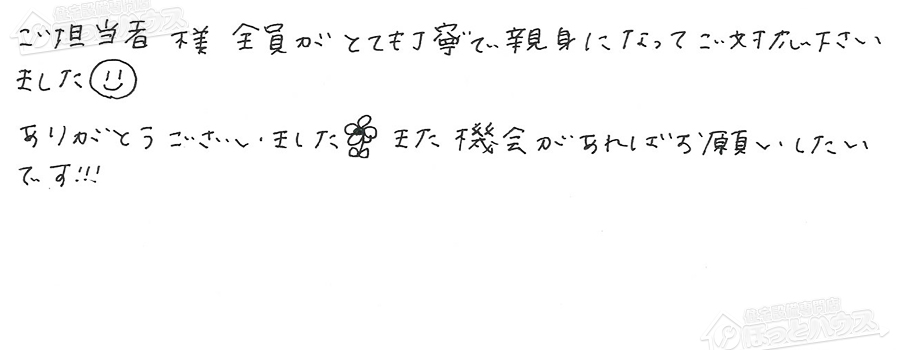 ご担当者 様 全員がとても丁寧で親身になってご対応下さい
ました
ありがとうございました また 機会があればお願いしたい
です!!!
住宅設備専門店
ほっとハウス